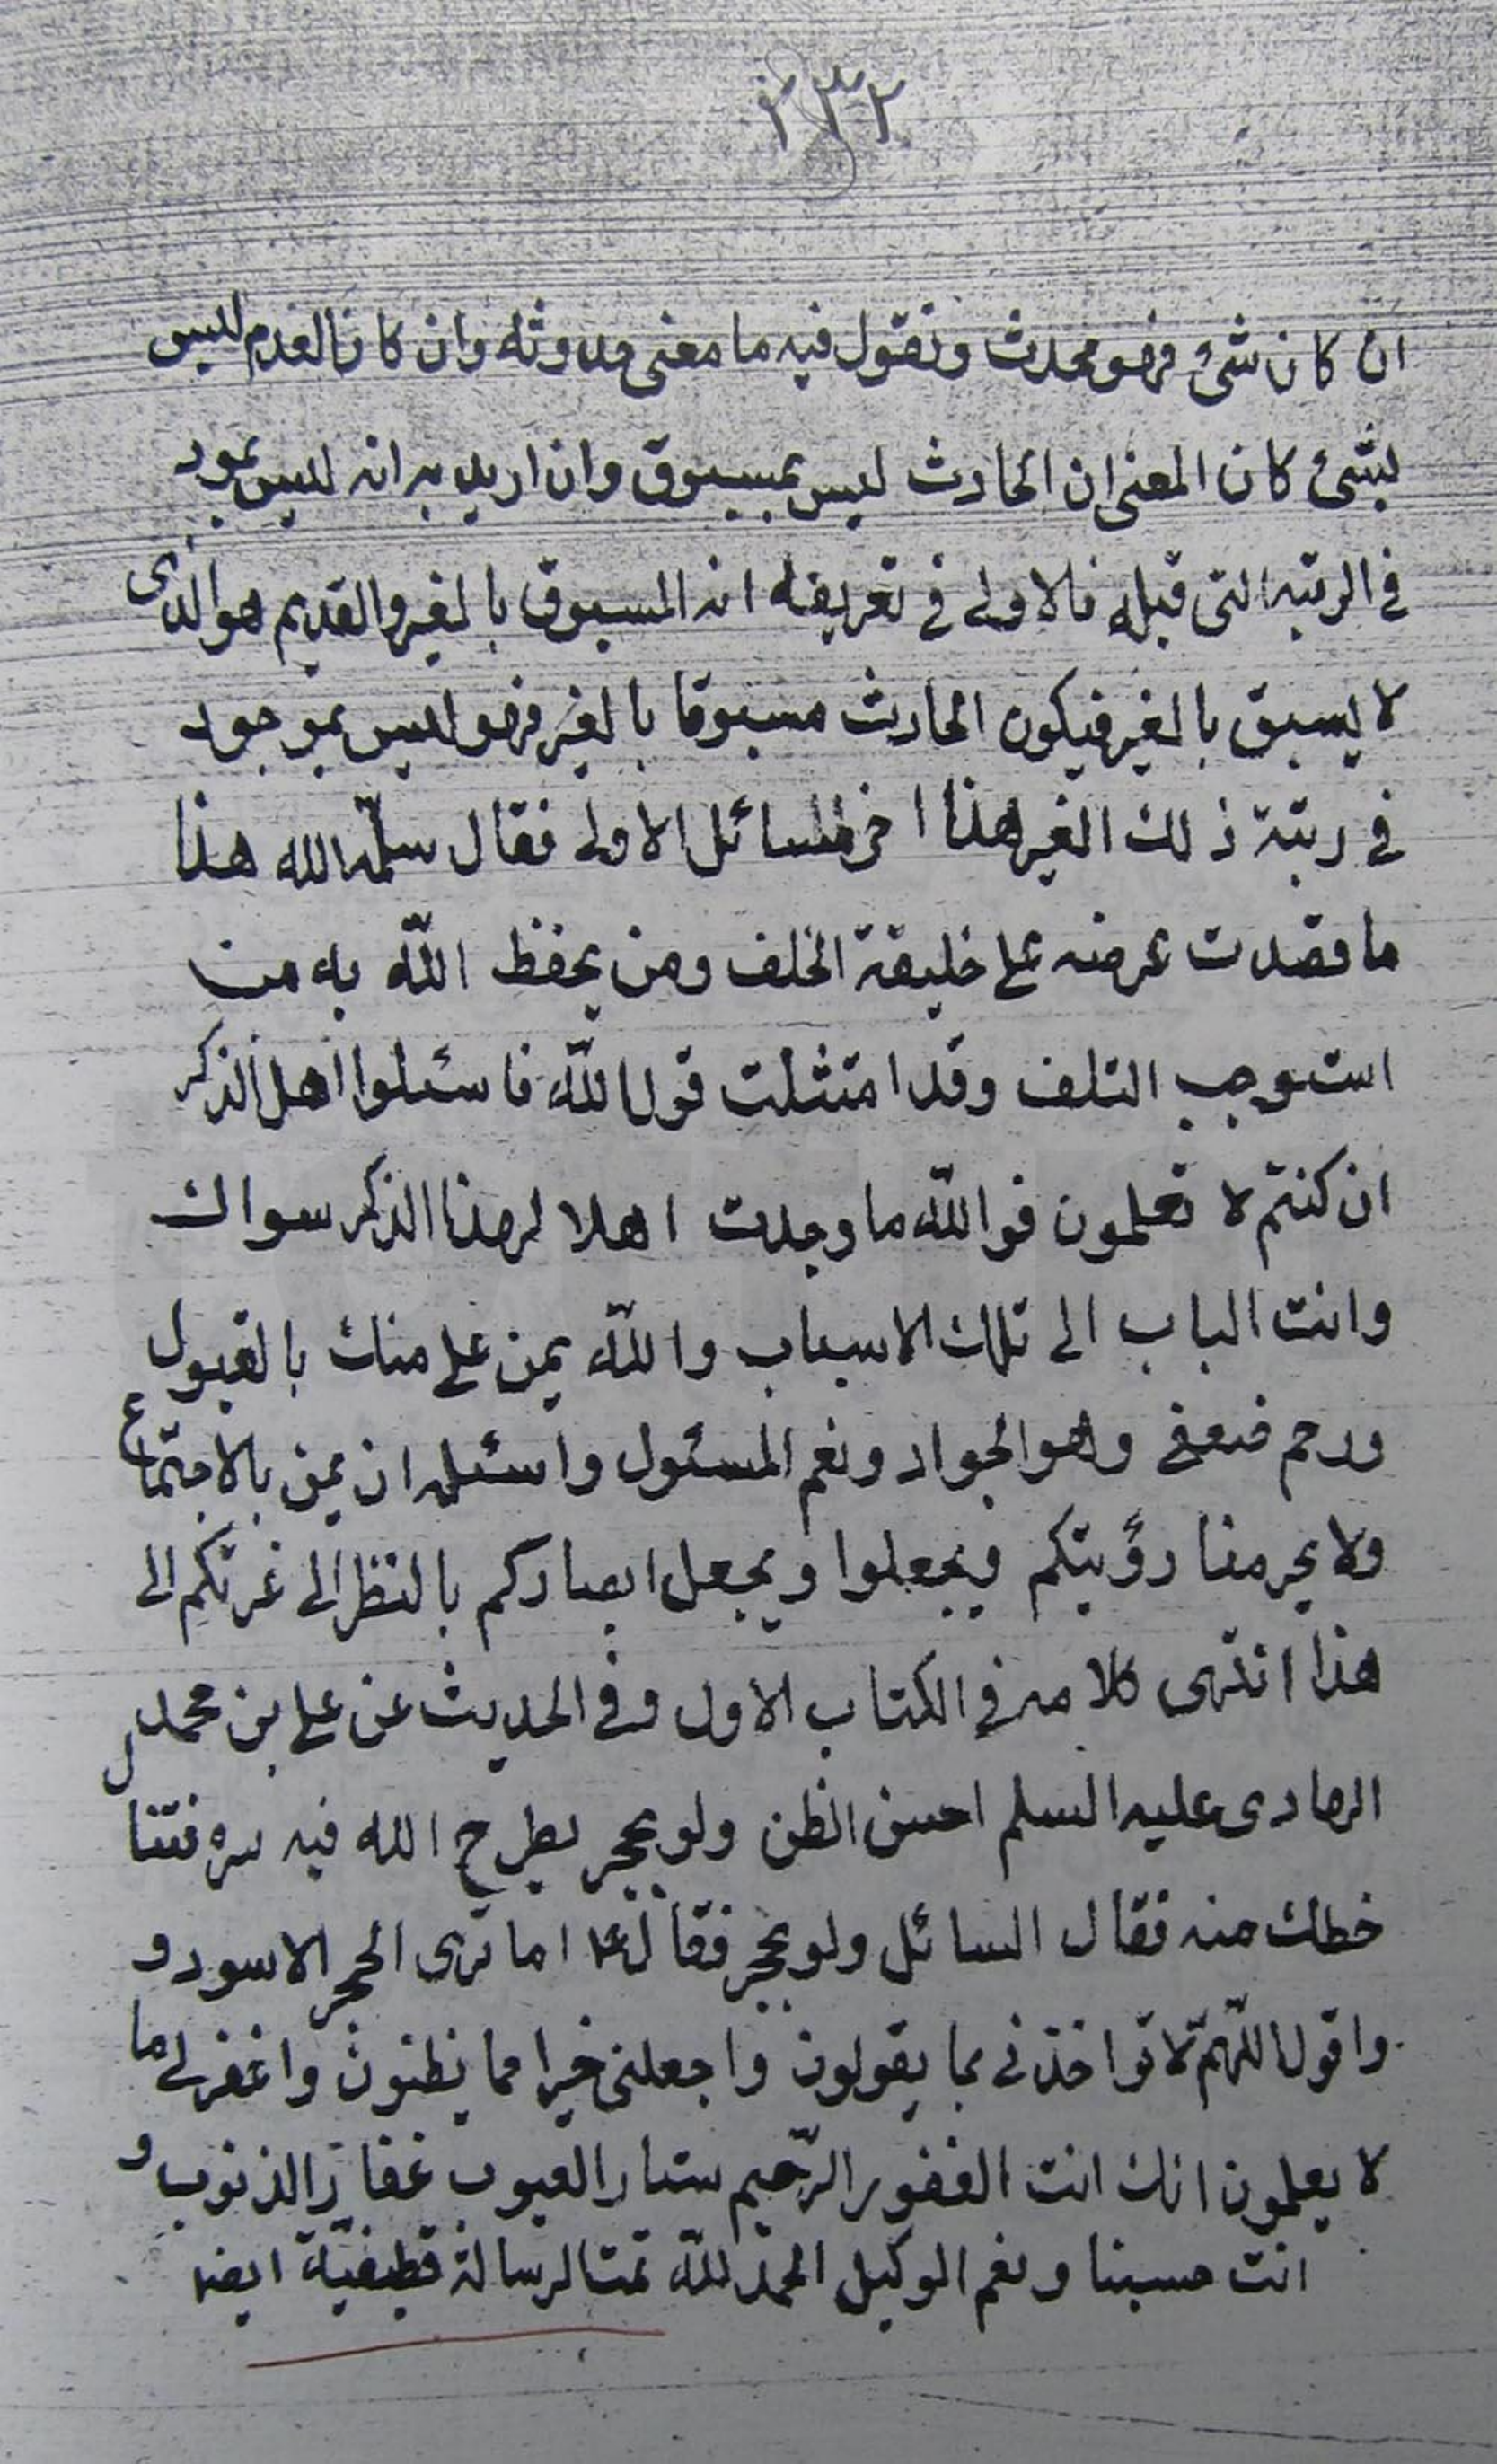 ٢٣٢
ان كان شئ فهو محدث ونقول فيه ما معنى حدوثه وان كان العدم ليس
بشئ كان المعنى ان الحادث ليس بمسبوق وان اريد به انه ليس بموجود
فى الرتبه التى قبله فالاولى فى تعريفه انه المسبوق بالغير والقديم هو الذى
لا يسبق بالغير فيكون الحادث مسبوقا بالغير فهو ليس بموجود
فى رتبة ذلك الغير هذا اخر المسائل الاولى فقال سلّمه الله هذا
ما قصدت عرضه على خليفة الخلف ومن يحفظ اللّه به من
استوجب التلف وقد امتثلت قول اللّه فاسئلوا اهل الذكر
ان كنتم لا تعلمون فواللّه ما وجدت اهلا لهذا الذكر سواك
وانت الباب الى تلك الاسباب واللّه يمن على منك بالقبول
ورحم ضعفى وهو الجواد ونعم المسئول واسئله ان يمن بالاجتماع
ولا يحرمنا رؤيتكم ويجعلوا ويجعل ابصاركم بالنظر الى غرتكم الى
هذا انتهى كلامه فى الكتاب الاول وفى الحديث عن على بن محمد
الهادى عليه السلم احسن الظن ولو بحجر يطرح الله فيه سره فتنال
حظك منه فقال السائل ولو بحجر فقال ع اما ترى الحجر الاسود و
واقول اللّهمّ لا تواخذنى بما يقولون واجعلنى خيرا مما يظنون واغفر لى ما
لا يعلمون انك انت الغفور الرّحيم ستار العيوب غفار الذنوب و
انت حسبنا ونعم الوكيل الحمد للّه تمت الرسالة قطيفيّة ايضا